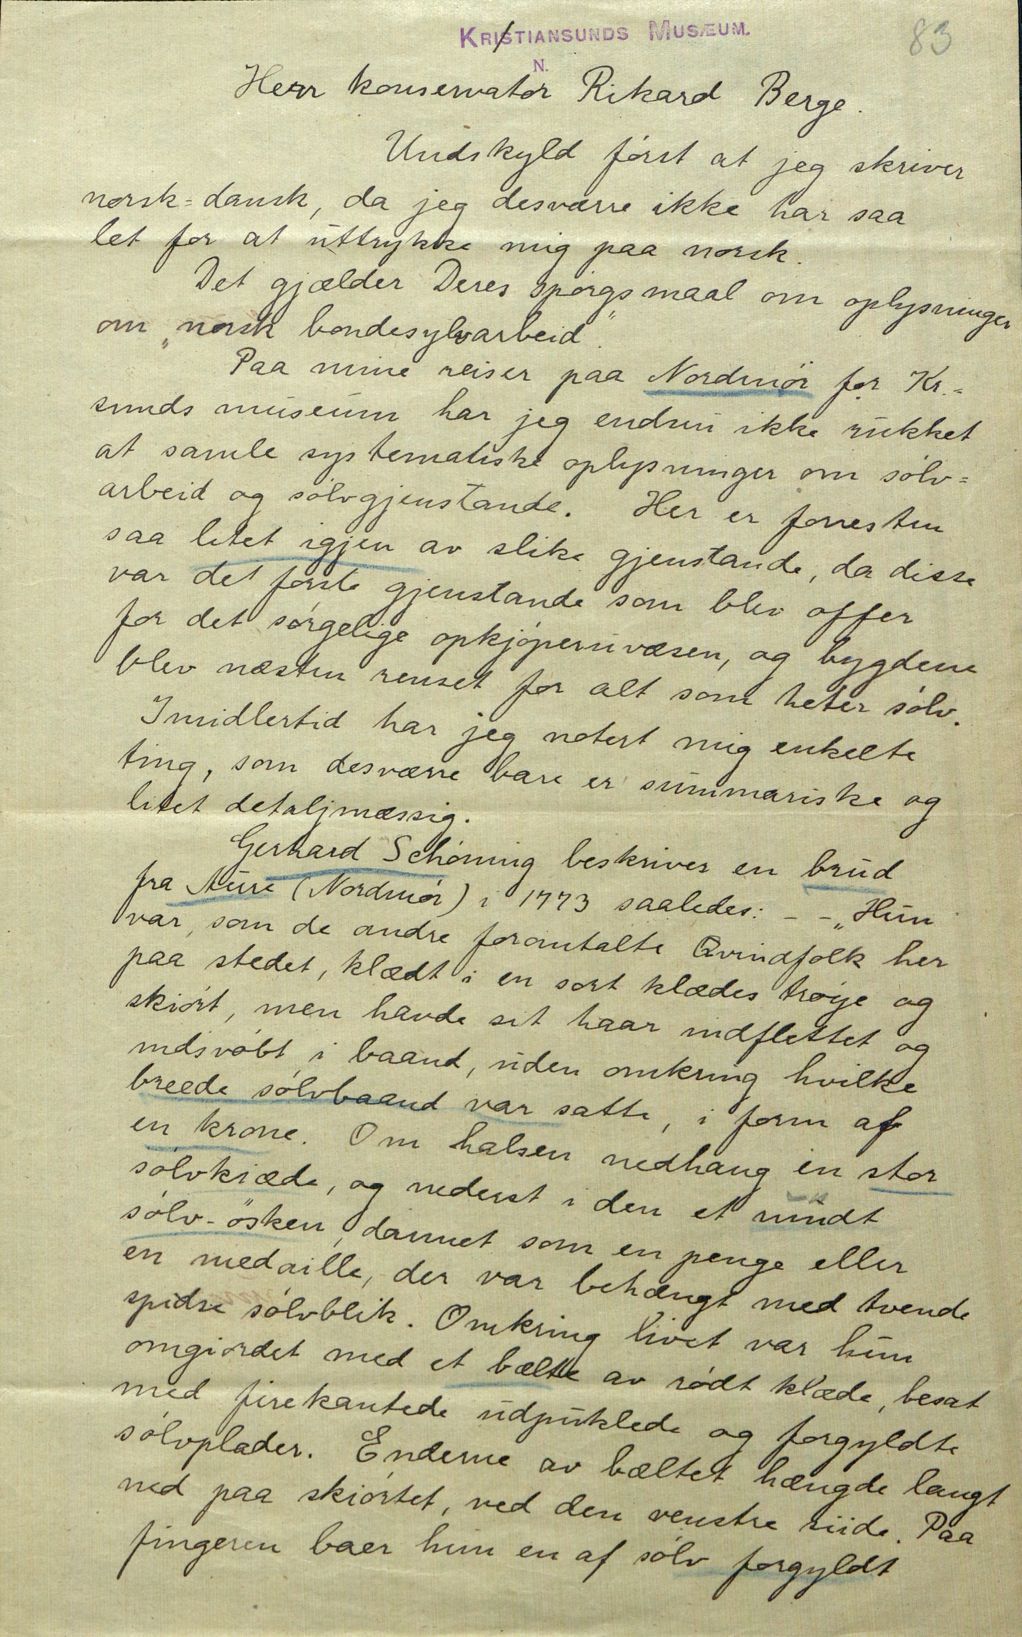 KRISTIANSUNDS MUSÆUM.
N.
83
Herr konservator Rikard Berge.
Undskyld først at jeg skriver
norsk-dansk, da jeg desværre ikke har saa
let for at uttrykke mig paa norsk.
Det gjælder Deres spørgsmaal om oplysninger
om „norsk bondesylvarbeid".
Paa mine reiser paa Nordmør for Kr.-
sunds museum har jeg endnu ikke rukket
at samle systematiske oplysninger om sølv-
arbeid og sølvgjenstande. Her er forresten
saa litet igjen av slike gjenstande, da disse
var det første gjenstande som blev offer
for det sørgelige opkjøperuvæsen, og bygdene
blev næsten renset for alt som heter sølv.
Imidlertid har jeg notert mig enkelte
ting, som desværre bare er summariske og
litet detaljmæssig.
Gerhard Schøning beskriver en brud
fra Aure (Nordmør) i 1773 saaledes: – – „Hun
var, som de andre foromtalte Qvindfolk her
paa stedet, klædt i en sort klædes trøje og
skiørt, men havde sit haar indflettet og
indsvøbt i baand, uden omkring hvilke
breede sølvbaand var satte, i form af
en krone. Om halsen nedhang en stor
sølvkiæde, og nederst i den et rundt
sølv-ösken, dannet som en penge eller
en medaille, der var behængt med tvende
spidse sølvblik. Omkring livet var hun
omgiordet med et bælte av rødt klæde, besat
med firekantede udpuklede og forgyldte
sølvplader. Enderne av bæltet hængde langt
ned paa skiørtet, ved den venstre siide. Paa
fingeren baer hun en af sølv forgyldt